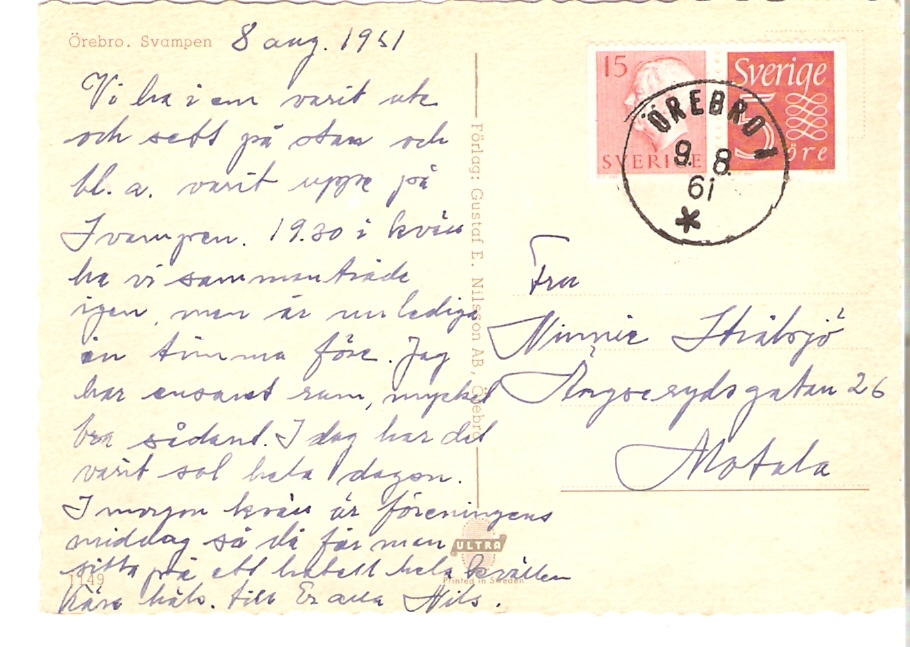 Örebro. Svampen 8 aug. 1961
Vi ha i em varit ute
och sett på stan och
bl. a. varit uppe på
Svampen. 19.30 i kväll
ha vi sammanträde
igen, men är nu lediga
en timma före. Jag
har ensamt rum, mycket
bra sådant. I dag har det
varit sol hela dagen.
I morgon kväll är föreningens
middag så då får man
sitta på ett hela kvällen
Kära häls. till Er alla Nils.
1149
Förlag: Gustaf E. Nilsson AB, Örebro
ULTRA
Printed in Sweden
15
SVERIGE
Sverige
5
öre
ÖREBRO 1
9. 8.
61
Fru
Minnie
26
Motala